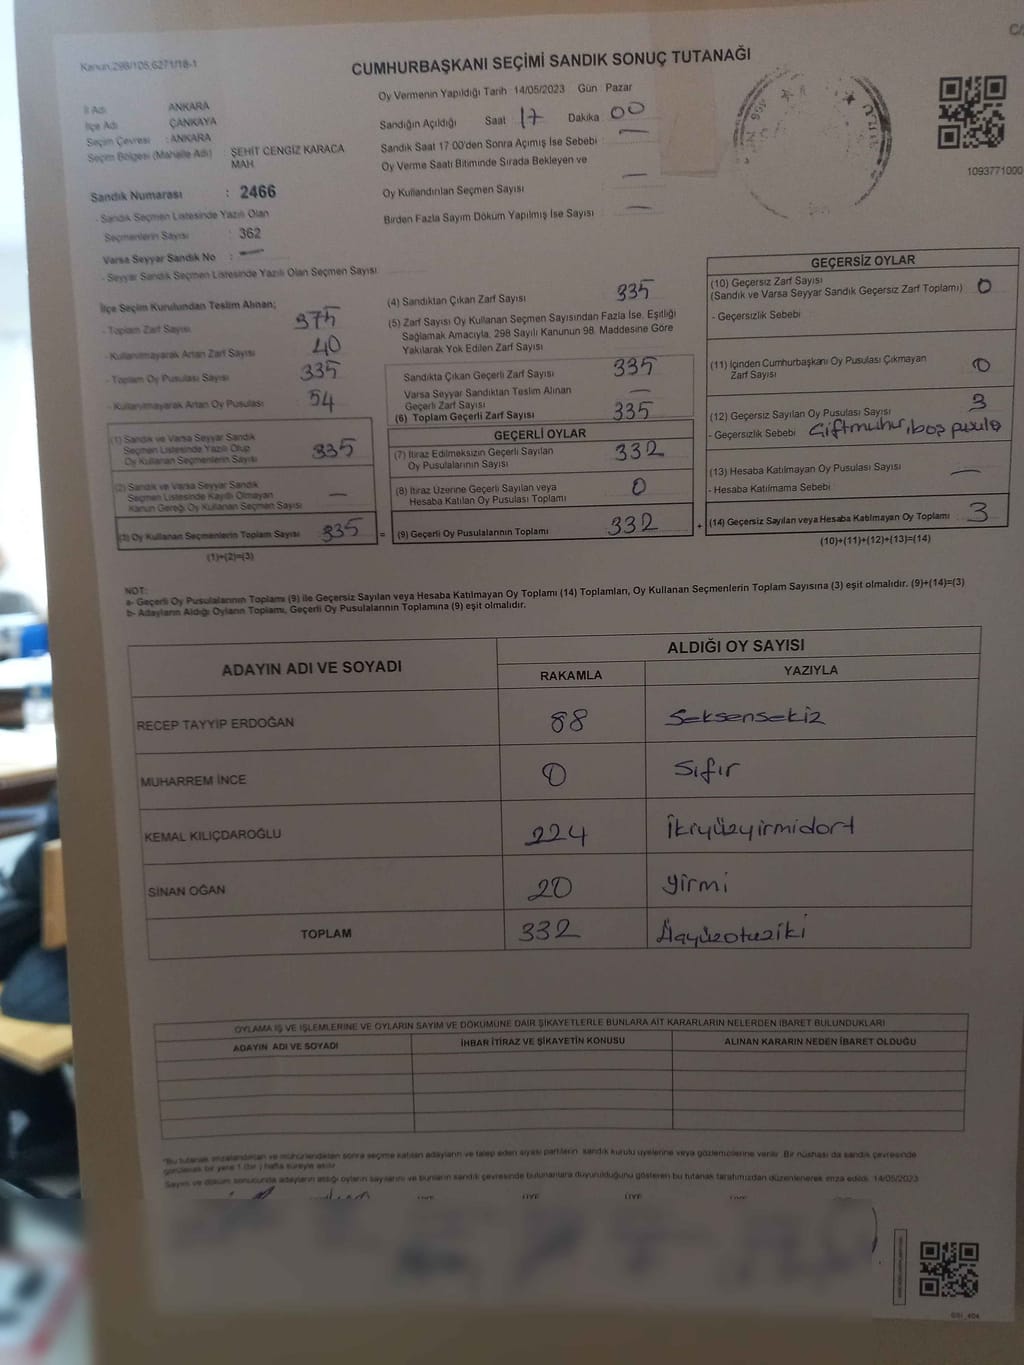 Kanun,298/105,6271/18-1
CUMHURBAŞKANI SEÇİMİ SANDIK SONUÇ TUTANAĞI
İl Adı ANKARA
İlçe Adı ÇANKAYA
Seçim Çevresi : ANKARA
Seçim Bölgesi (Mahalle Adı) ŞEHİT CENGİZ KARACA
MAH.
Sandık Numarası : 2466
- Sandık Seçmen Listesinde Yazılı Olan
Seçmenlerin Sayısı : 362
Varsa Seyyar Sandık No : —
- Seyyar Sandık Seçmen Listesinde Yazılı Olan Seçmen Sayısı
Oy Vermenin Yapıldığı Tarih 14/05/2023 Gün Pazar
Sandığın Açıldığı Saat 17 Dakika 00
Sandık Saat 17:00'den Sonra Açımış İse Sebebi : —
Oy Verme Saati Bitiminde Sırada Bekleyen ve
Oy Kullandırılan Seçmen Sayısı —
Birden Fazla Sayım Döküm Yapılmış İse Sayısı —
1093771000
İlçe Seçim Kurulundan Teslim Alınan;
- Toplam Zarf Sayısı 375
- Kullanılmayarak Artan Zarf Sayısı 40
- Toplam Oy Pusulası Sayısı 335
- Kullanılmayarak Artan Oy Pusulası 54
(1) Sandık ve Varsa Seyyar Sandık
Seçmen Listesinde Yazılı Olup
Oy Kullanan Seçmenlerin Sayısı 335
(2) Sandık ve Varsa Seyyar Sandık
Seçmen Listesinde Kayıtlı Olmayan
Kanun Gereği Oy Kullanan Seçmen Sayısı —
(3) Oy Kullanan Seçmenlerin Toplam Sayısı 335
(1)+(2)=(3)
(4) Sandıktan Çıkan Zarf Sayısı 335
(5) Zarf Sayısı Oy Kullanan Seçmen Sayısından Fazla İse, Eşitliği
Sağlamak Amacıyla, 298 Sayılı Kanunun 98. Maddesine Göre
Yakılarak Yok Edilen Zarf Sayısı
Sandıkta Çıkan Geçerli Zarf Sayısı 335
Varsa Seyyar Sandıktan Teslim Alınan
Geçerli Zarf Sayısı —
(6) Toplam Geçerli Zarf Sayısı 335
GEÇERLİ OYLAR
(7) İtiraz Edilmeksizin Geçerli Sayılan
Oy Pusulalarının Sayısı 332
(8) İtiraz Üzerine Geçerli Sayılan veya
Hesaba Katılan Oy Pusulası Toplamı 0
= (9) Geçerli Oy Pusulalarının Toplamı 332
GEÇERSİZ OYLAR
(10) Geçersiz Zarf Sayısı
(Sandık ve Varsa Seyyar Sandık Geçersiz Zarf Toplamı) 0
- Geçersizlik Sebebi
(11) İçinden Cumhurbaşkanı Oy Pusulası Çıkmayan
Zarf Sayısı 0
(12) Geçersiz Sayılan Oy Pusulası Sayısı 3
- Geçersizlik Sebebi Çiftmühür, boş pusula
(13) Hesaba Katılmayan Oy Pusulası Sayısı —
- Hesaba Katılmama Sebebi
+ (14) Geçersiz Sayılan veya Hesaba Katılmayan Oy Toplamı 3
(10)+(11)+(12)+(13)=(14)
NOT:
a- Geçerli Oy Pusulalarının Toplamı (9) ile Geçersiz Sayılan veya Hesaba Katılmayan Oy Toplamı (14) Toplamları, Oy Kullanan Seçmenlerin Toplam Sayısına (3) eşit olmalıdır. (9)+(14)=(3)
b- Adayların Aldığı Oyların Toplamı, Geçerli Oy Pusulalarının Toplamına (9) eşit olmalıdır.
ADAYIN ADI VE SOYADI
ALDIĞI OY SAYISI
RAKAMLA YAZIYLA
RECEP TAYYİP ERDOĞAN 88 Seksensekiz
MUHARREM İNCE 0 Sıfır
KEMAL KILIÇDAROĞLU 224 İkiyüzyirmidört
SİNAN OĞAN 20 Yirmi
TOPLAM 332 Üçyüzotuziki
OYLAMA İŞ VE İŞLEMLERİNE VE OYLARIN SAYIM VE DÖKÜMÜNE DAİR ŞİKAYETLERLE BUNLARA AİT KARARLARIN NELERDEN İBARET BULUNDUKLARI
ADAYIN ADI VE SOYADI İHBAR İTİRAZ VE ŞİKAYETİN KONUSU ALINAN KARARIN NEDEN İBARET OLDUĞU
"Bu tutanak imzalandıktan ve mühürlendikten sonra seçime katılan adayların ve talep eden siyasi partilerin sandık kurulu üyelerine veya gözlemcilerine verilir. Bir nüshası da sandık çevresinde
görülecek bir yere 1 (bir) hafta süreyle asılır.
Sayım ve döküm sonucunda adayların aldığı oyların sayılarını ve bunların sandık çevresinde bulunanlara duyurulduğunu gösteren bu tutanak tarafımızdan düzenlenerek imza edildi. 14/05/2023
ÜYE ÜYE ÜYE ÜYE